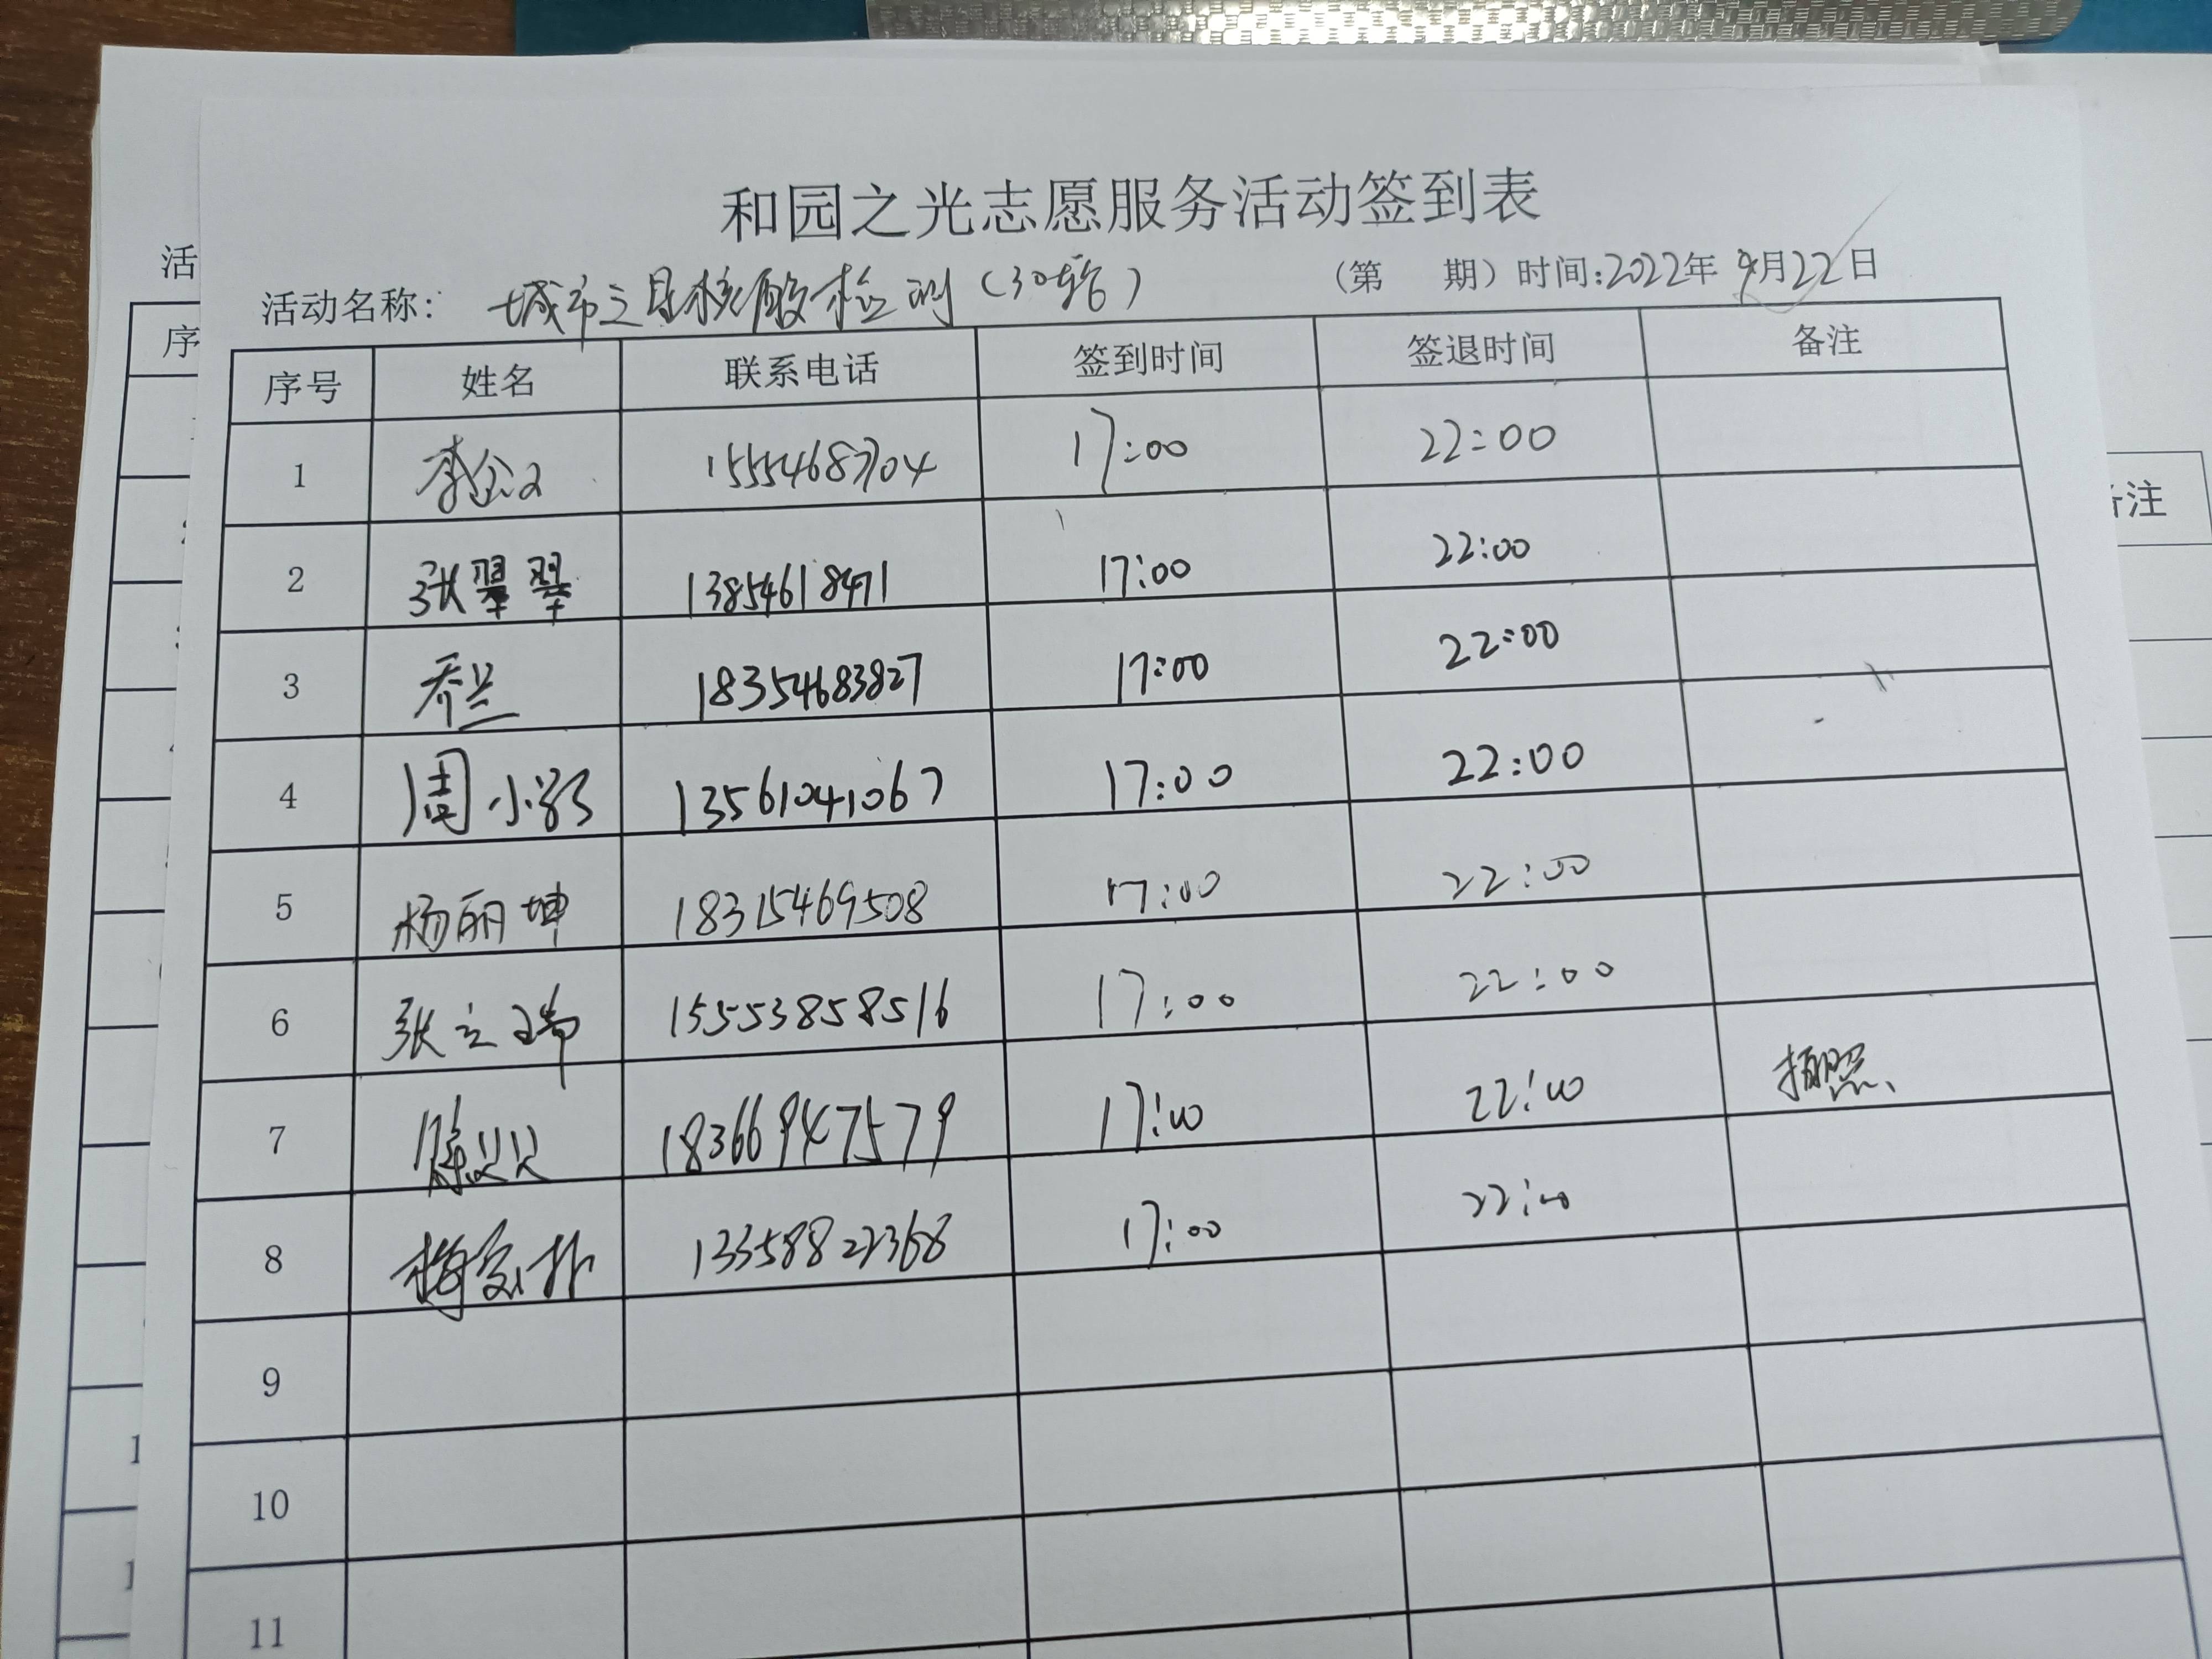 和园之光志愿服务活动签到表
活动名称: 城市之星核酸检测(30号楼) (第 期) 时间:2022年9月22日
序号 姓名 联系电话 签到时间 签退时间 备注
1 15554683704 17:00 22:00
2 张翠翠 13854618471 17:00 22:00
3 乔兰 18354683827 17:00 22:00
4 周小彭 13561041067 17:00 22:00
5 杨丽坤 18315469508 17:00 22:00
6 张立瑞 15553858516 17:00 22:00
7 18366947579 17:00 22:00 拍照
8 13358822368 17:00 22:00
9
10
11
活
序
备注